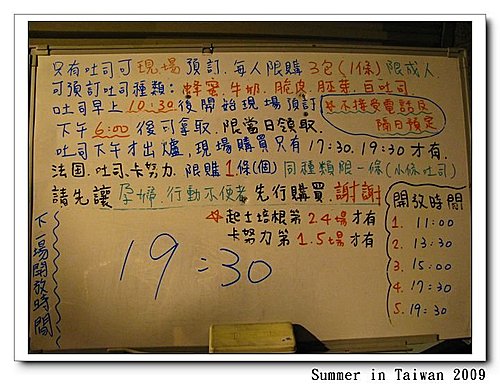 只有吐司可現場預訂.每人限購3包(1條)限成人.
可預訂吐司種類:蜂蜜.牛奶.脆皮.胚芽.白吐司.
吐司早上10:30後開始現場預訂
※不接受電話及
隔日預定
下午6:00後可拿取.限當日領取.
吐司下午才出爐,現場購買只有17:30.19:30才有.
法國.吐司.卡努力.限購1條(個)同種類限一條(小條吐司)
請先讓孕婦.行動不便者先行購買.謝謝
☆起士培根第2.4場才有
卡努力第1.5場才有
開放時間
1. 11:00
2. 13:30
3. 15:00
4. 17:30
5. 19:30
下一場開放時間
19:30
Summer in Taiwan 2009